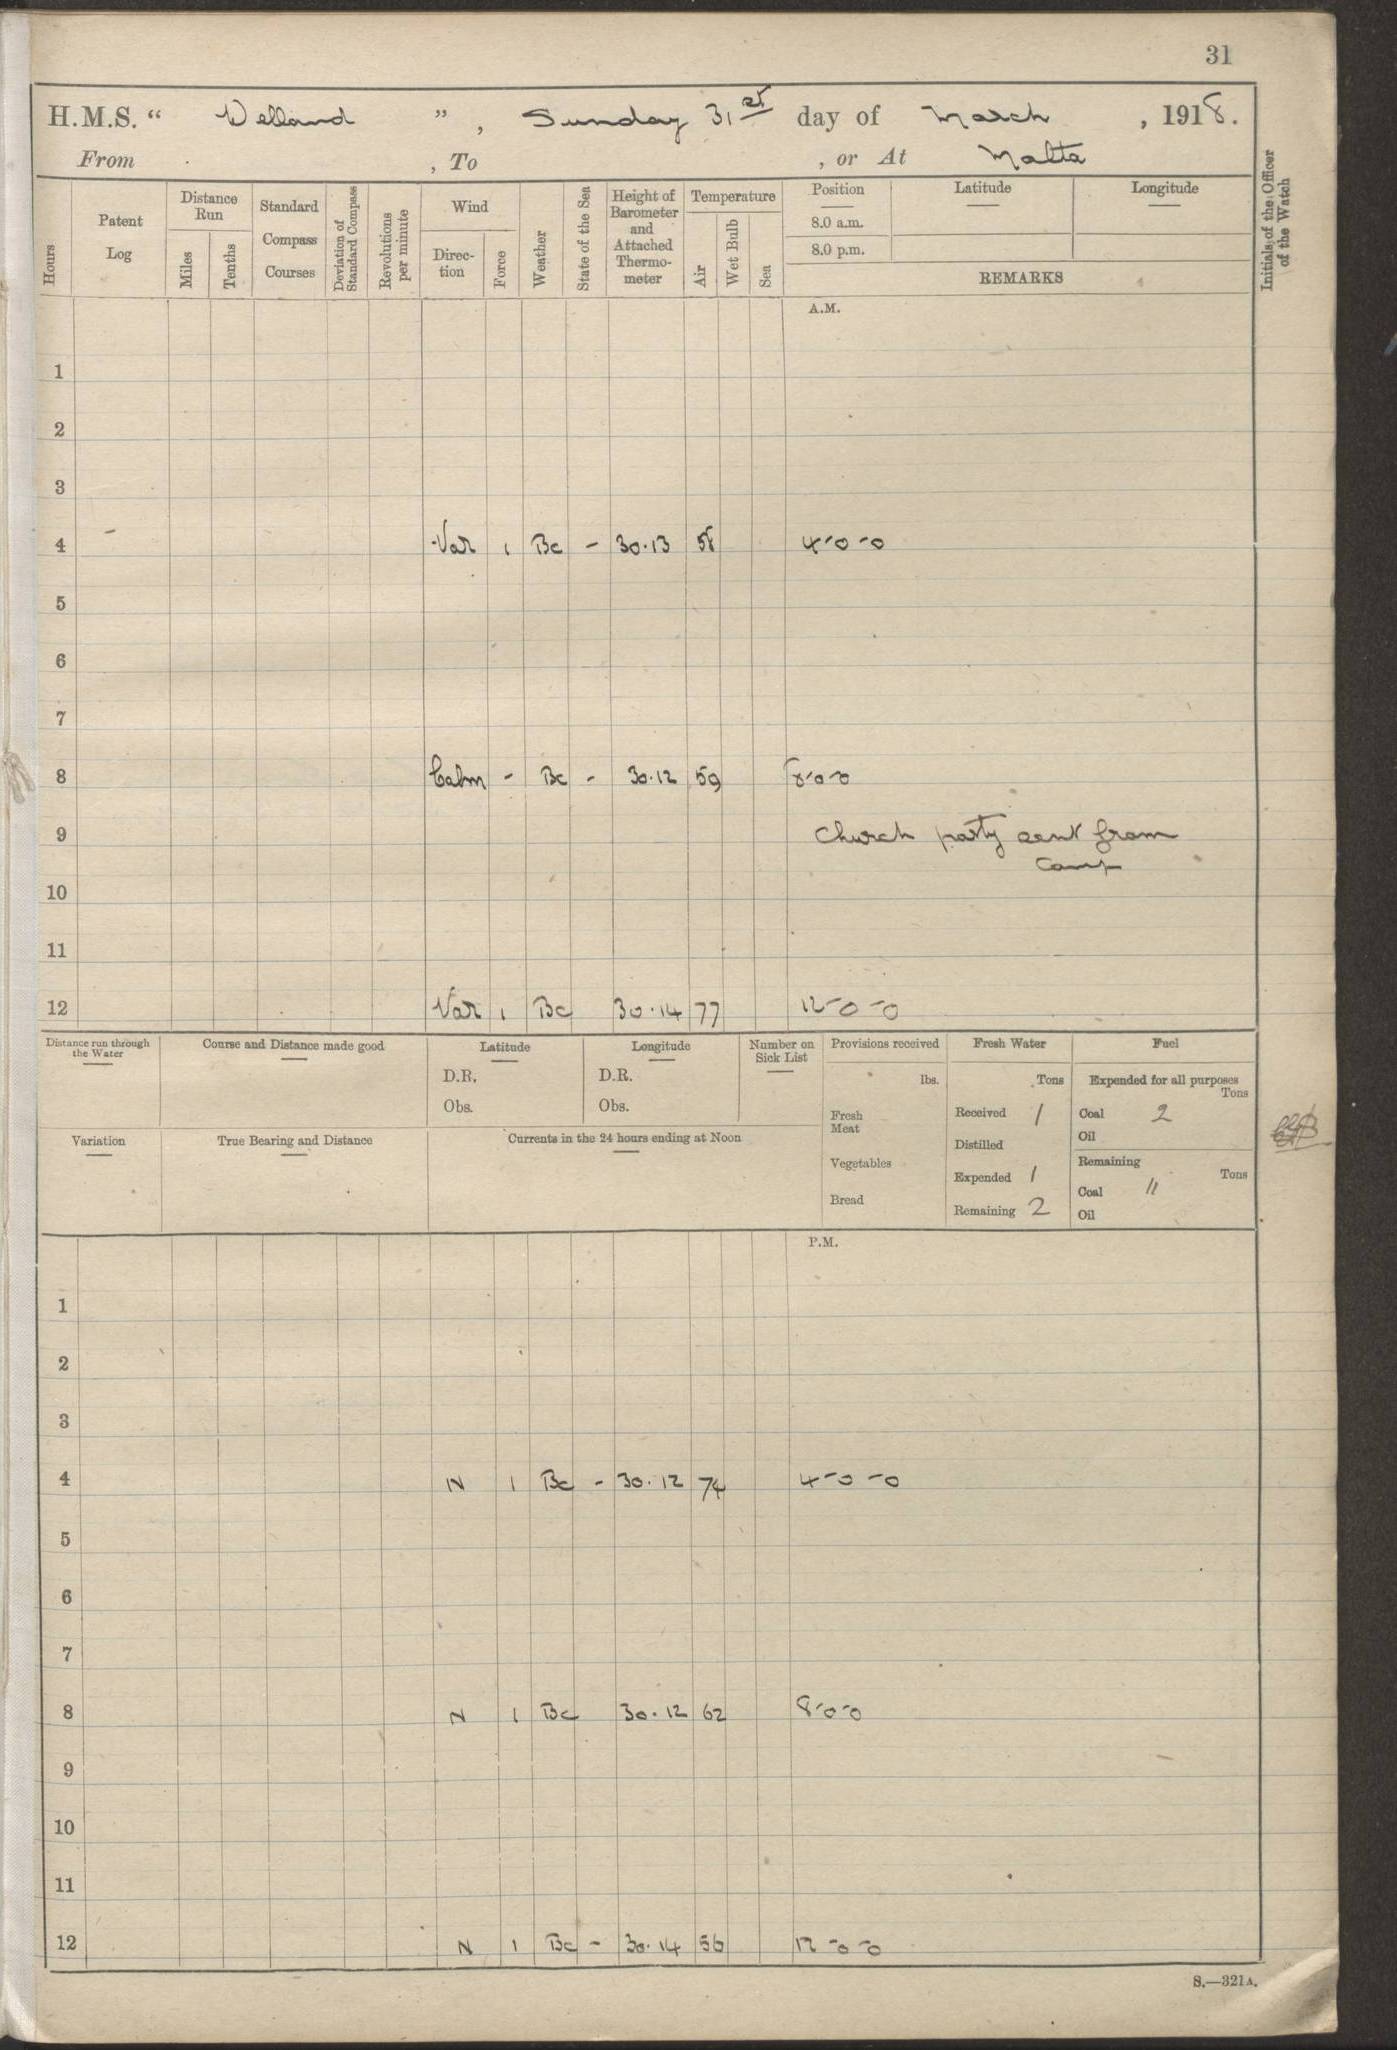 31
H.M.S. “ Welland ”, Sunday 31st day of March, 1918.
From , To , or At Malta
Hours
Patent Log
Distance Run
Miles
Tenths
Standard Compass Courses
Deviation of Standard Compass
Revolutions per minute
Wind
Direction
Force
Weather
State of the Sea
Height of Barometer and Attached Thermometer
Temperature
Air
Wet Bulb
Sea
Position
8.0 a.m.
8.0 p.m.
Latitude
Longitude
REMARKS
Initials of the Officer of the Watch
A.M.
1
2
3
4 - Var 1 Bc - 30.13 58 4-0-0
5
6
7
8 Calm - Bc - 30.12 59 8-0-0
9 Church party sent from
Camp
10
11
12 Var 1 Bc 30.14 77 12-0-0
Distance run through the Water
Course and Distance made good
Latitude
D.R.
Obs.
Longitude
D.R.
Obs.
Number on Sick List
Provisions received
lbs.
Fresh Meat
Vegetables
Bread
Fresh Water
Tons
Received 1
Distilled
Expended 1
Remaining 2
Fuel
Expended for all purposes
Tons
Coal 2
Oil
Remaining
Tons
Coal 11
Oil
Variation
True Bearing and Distance
Currents in the 24 hours ending at Noon
P.M.
1
2
3
4 N 1 Bc - 30.12 74 4-0-0
5
6
7
8 N 1 Bc 30.12 62 8-0-0
9
10
11
12 N 1 Bc - 30.14 56 12-0-0
S.—321A.